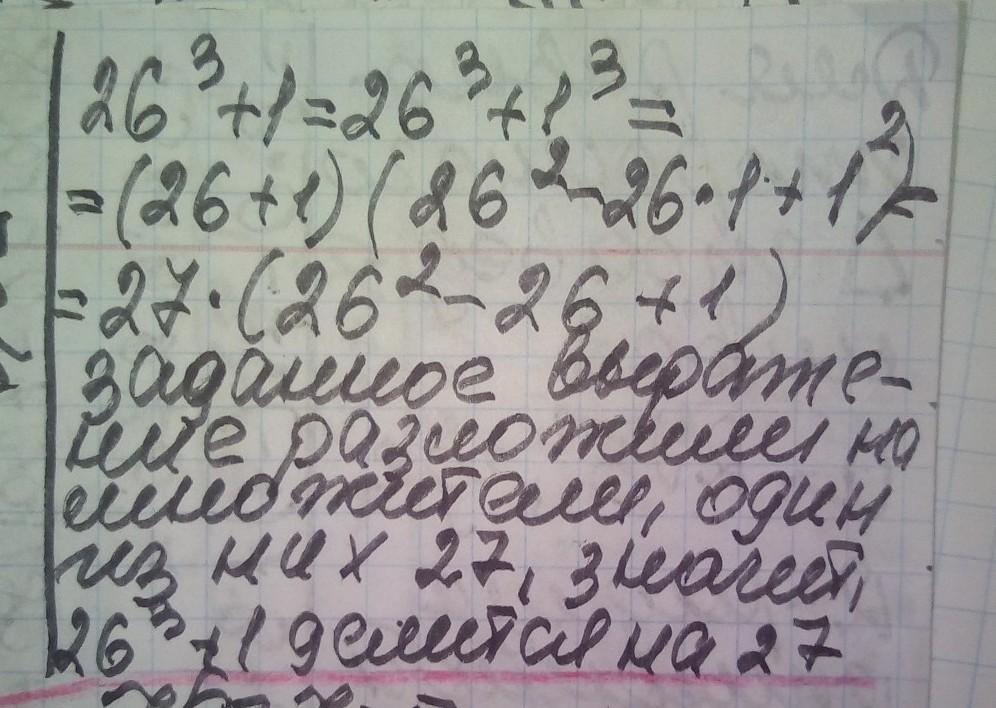 26³+1=26³+1³=
=(26+1)(26²-26·1+1²)=
=27·(26²-26+1)
заданное выраже-
ние разложили на
множители, один
из них 27, значит,
26³+1 делится на 27